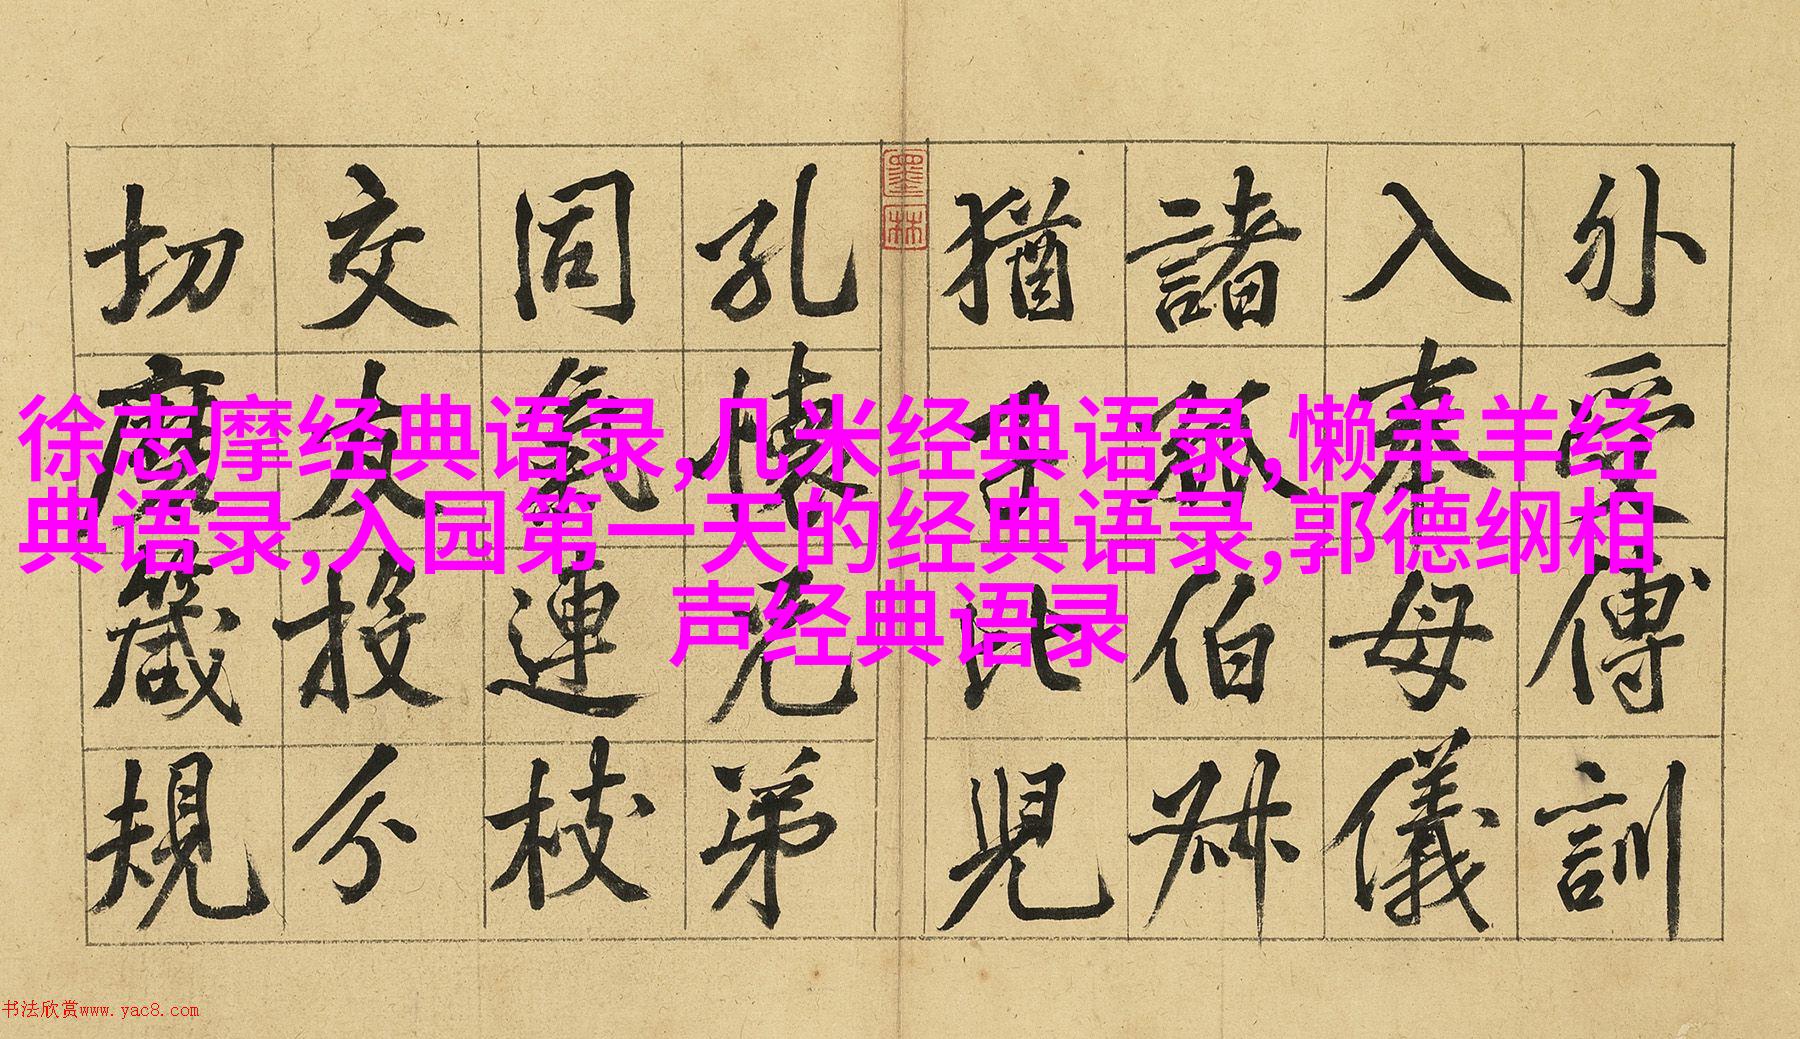 外受傅訓
入奉母儀
諸姑伯叔
猶子比兒
墨林
孔懷兄弟
同氣連枝
交友投分
切磨箴規
徐志摩经典语录,几米经典语录,懒羊羊经
典语录,入园第一天的经典语录,郭德纲相
声经典语录
书法欣赏www.yac8.com